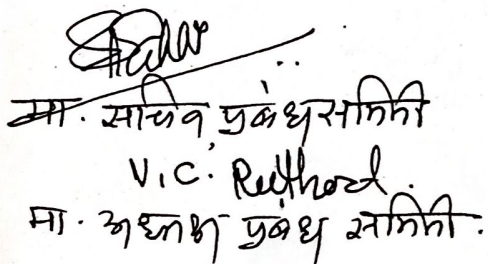 मा. सचिव प्रबंध समिती
V.C. Rathod.
मा. अध्यक्ष प्रबंध समिती.